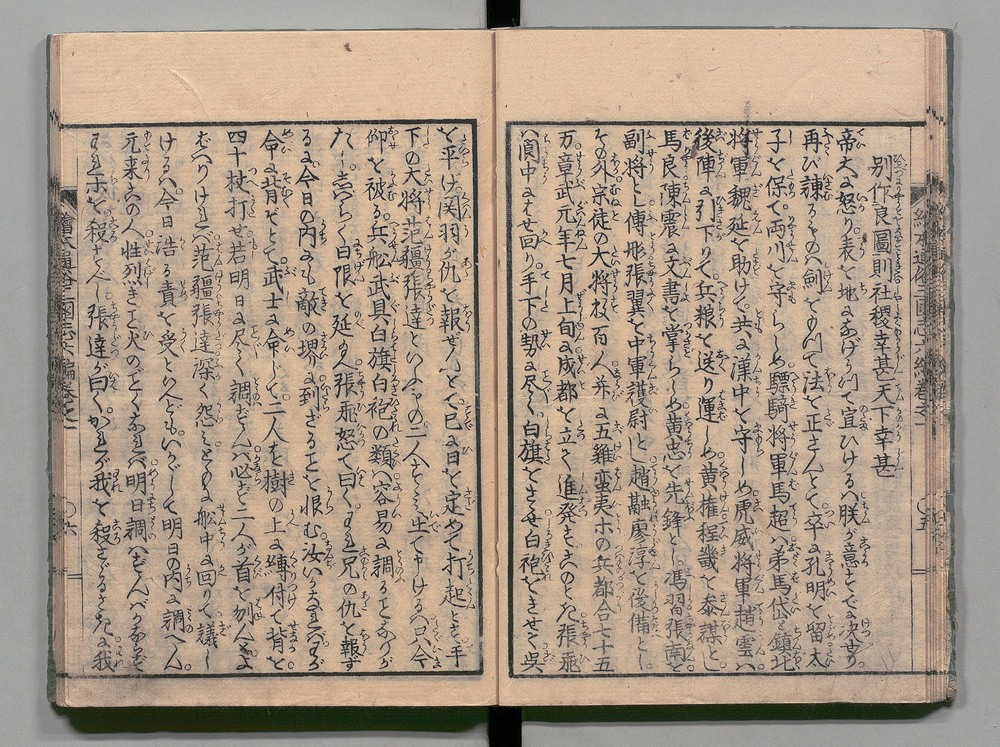 別作良圖則社稷幸甚天下幸甚
帝大に怒り表を地になげうつて宣ひけるハ朕が意すでに决せり
再び諫るものハ劔をもつて法を正さんとて卒に孔明を留太
子を保て両川を守らしめ驃騎将軍馬超ハ弟馬岱と鎮北
将軍魏延を助けて共に漢中を守しめ虎威将軍趙雲ハ
後陣に引下りて兵粮を送り運しめ黄權程畿を叅謀とし
馬良陳震に文書を掌らしめ黄忠を先鋒とし馮習張南を
副将とし傅彤張翼を中軍護尉とし趙融廖淳を後備とし
その外宗徒の大将数百人并に五谿蛮夷ホの兵都合七十五
万章武元年七月上旬に成都を立て進発すこのとき張飛
ハ閬中にはせ回り手下の勢に尽く白旗をさゝせ白袍をきせて呉
を平げ関羽が仇を報せんとて已に日を定めて打起んとす手
下の大将范疆張達といふもの二人すゝみ出て申けるハ只今
仰を被る兵船武具白旗白袍の類ハ容易に調ることなりが
たししバらく日限を延め給へ張飛怒て曰くわれ兄の仇を報ず
るに今日の内にも敵の堺に到ざることを恨む汝いかなれバわが
命に背ぞとて武士に命じて二人を樹の上に縛付て背を
四十杖打せ若明日に尽く調ずんバ必ず二人が首を刎んと
いへりけれバ范疆張達深く怨をふくみ船中に回りて議し
けるハ今日浩る責を受といへどもいかでして明日の内に調へん
元来この人性烈きこと火のごとくなれバ明日調ハずんバかならず
われホを殺すべし張達が曰くかれが我を殺さざるさきに我